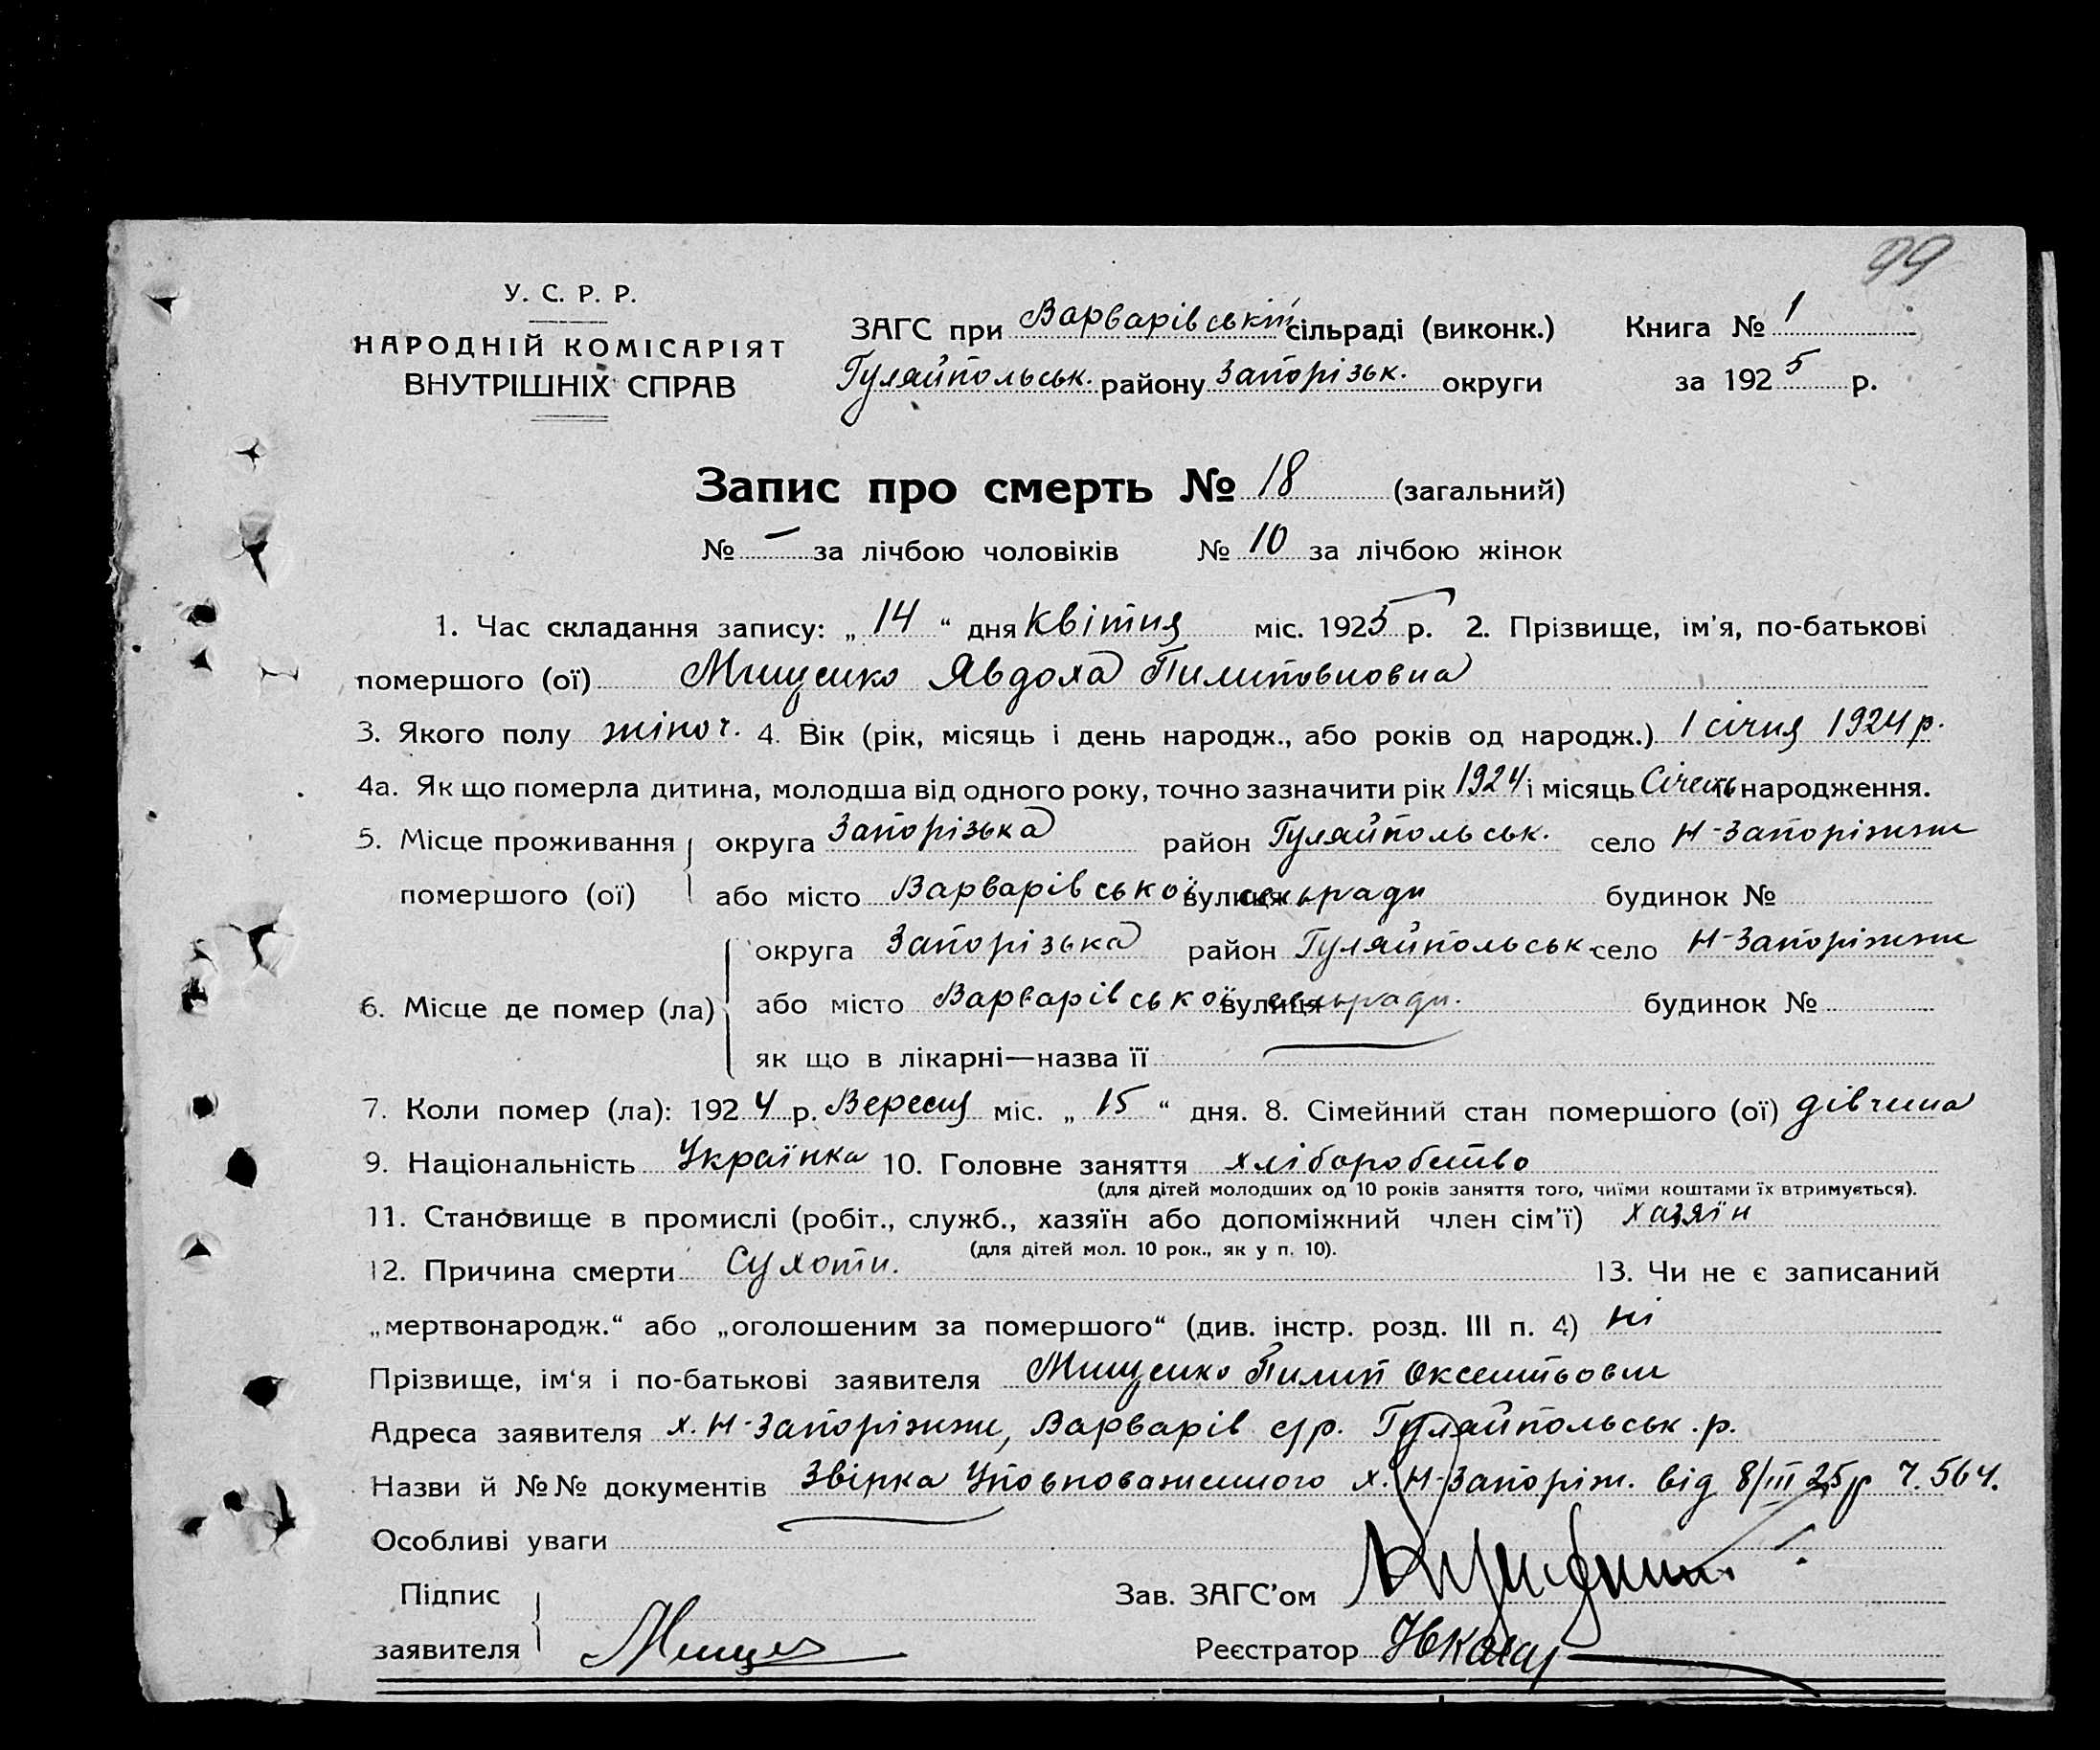 99
У. С. Р. Р.
НАРОДНІЙ КОМІСАРІЯТ
ВНУТРІШНІХ СПРАВ
ЗАГС при Варварівській сільраді (виконк.)
Гуляйпольськ. району Запорізьк. округи
Книга № 1
за 1925 р.
Запис про смерть № 18 (загальний)
№ – за лічбою чоловіків № 10 за лічбою жінок
1. Час складання запису: „ 14 “ дня квітня міс. 1925 р. 2. Прізвище, ім'я, по-батькові
помершого (ої) Мищенко Явдоха Пилиповновна
3. Якого полу жіноч. 4. Вік (рік, місяць і день народж., або років од народж.) 1 січня 1924 р.
4а. Як що померла дитина, молодша від одного року, точно зазначити рік 1924 і місяць Січень народження.
5. Місце проживання округа Запорізька район Гуляйпольськ. село Н-Запоріжжи
помершого (ої) або місто Варварівської вулиця сельради будинок №
округа Запорізька район Гуляйпольськ. село Н-Запоріжжи
6. Місце де помер (ла) або місто Варварівської вулиця сельради. будинок №
як що в лікарні—назва її
7. Коли помер (ла): 1924 р. Вересня міс. „ 15 “ дня. 8. Сімейний стан помершого (ої) дівчина
9. Національність Українка 10. Головне заняття хліборобство
(для дітей молодших од 10 років заняття того, чиїми коштами їх втримується).
11. Становище в промислі (робіт., служб., хазяїн або допоміжний член сім'ї) хазяїн
(для дітей мол. 10 рок., як у п. 10).
12. Причина смерти Сухоти. 13. Чи не є записаний
„мертвонародж.“ або „оголошеним за помершого“ (див. інстр. розд. III п. 4) ні
Прізвище, ім'я і по-батькові заявителя Мищенко Пилип Оксентьови
Адреса заявителя х. Н-Запоріжжи, Варварів с/р. Гуляйпольськ. р.
Назви й №№ документів Звірка Уповповаженного х. Н-Запоріж. від 8/III 25 р ч. 564.
Особливі уваги
Підпис
заявителя Мище
Зав. ЗАГС'ом
Реєстратор